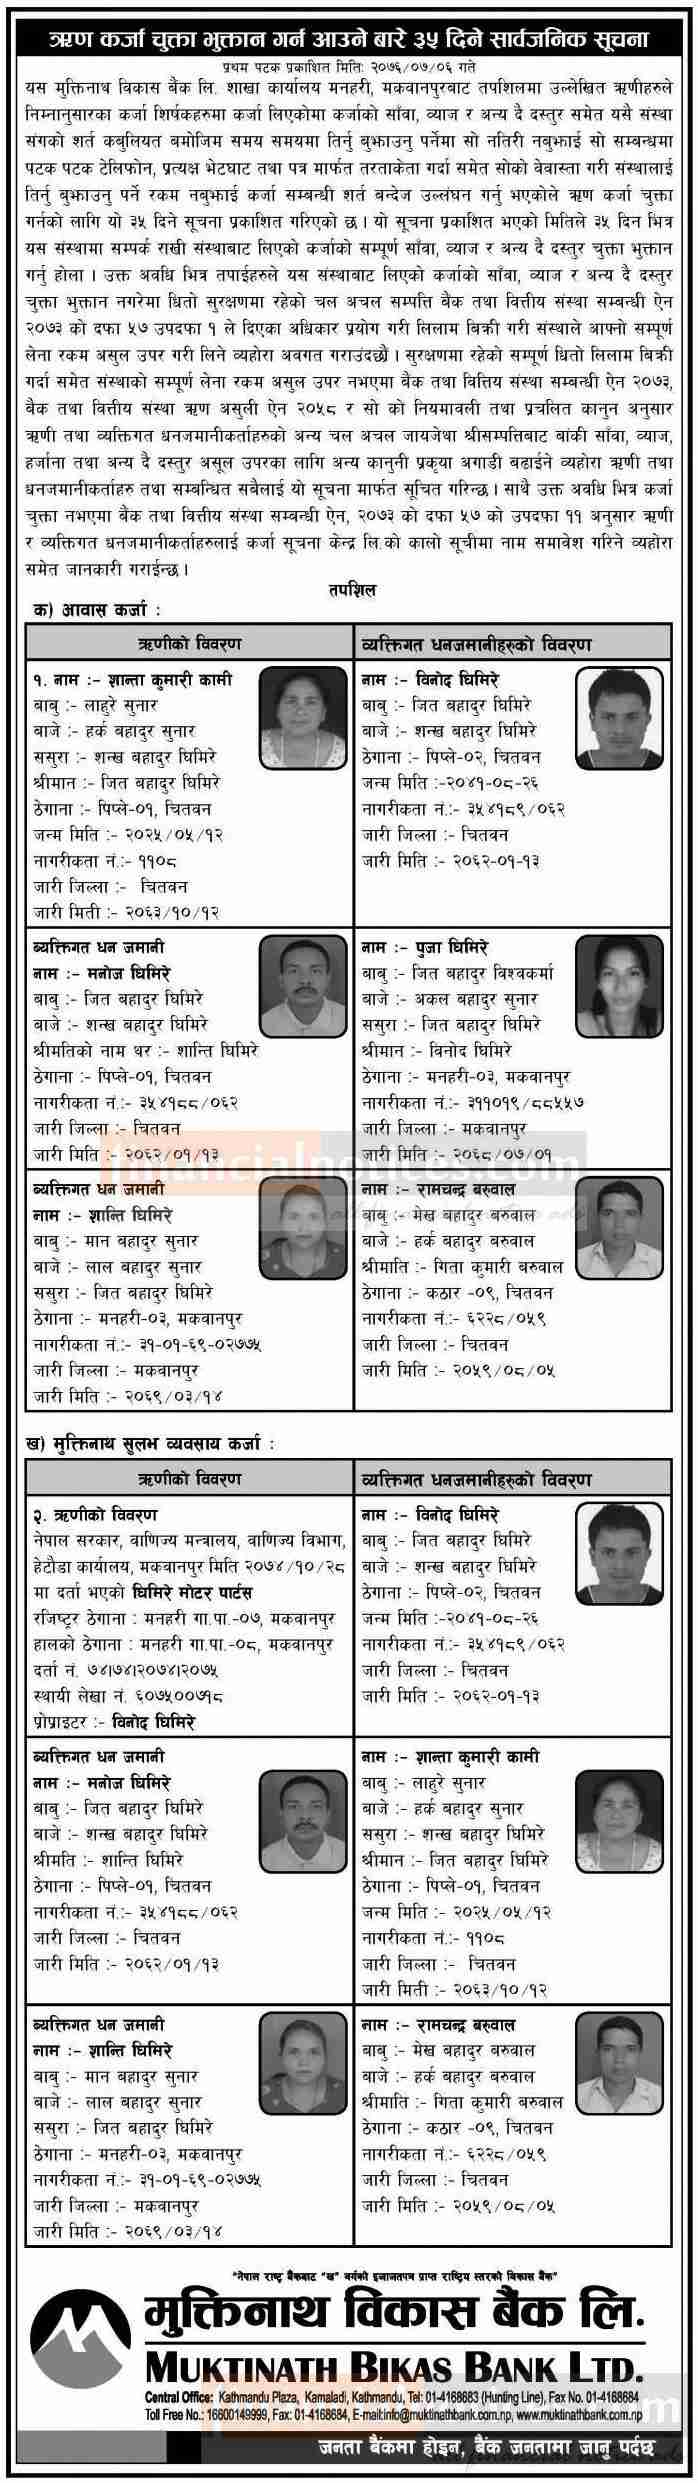 ऋण कर्जा चुक्ता भुक्तान गर्न आउने बारे ३५ दिने सार्वजनिक सूचना
प्रथम पटक प्रकाशित मिति: २०७६/०७/०६ गते
यस मुक्तिनाथ विकास बैंक लि. शाखा कार्यालय मनहरी, मकवानपुरबाट तपशिलमा उल्लेखित ऋणीहरुले
निम्नानुसारका कर्जा शिर्षकहरुमा कर्जा लिएकोमा कर्जाको साँवा, व्याज र अन्य दै दस्तुर समेत यसै संस्था
संगको शर्त कबुलियत बमोजिम समय समयमा तिर्नु बुझाउनु पर्नेमा सो नतिरी नबुझाई सो सम्बन्धमा
पटक पटक टेलिफोन, प्रत्यक्ष भेटघाट तथा पत्र मार्फत तरताकेता गर्दा समेत सोको वेवास्ता गरी संस्थालाई
तिर्नु बुझाउनु पर्ने रकम नबुझाई कर्जा सम्बन्धी शर्त बन्देज उल्लंघन गर्नु भएकोले ऋण कर्जा चुक्ता
गर्नको लागि यो ३५ दिने सूचना प्रकाशित गरिएको छ। यो सूचना प्रकाशित भएको मितिले ३५ दिन भित्र
यस संस्थामा सम्पर्क राखी संस्थाबाट लिएको कर्जाको सम्पूर्ण साँवा, व्याज र अन्य दै दस्तुर चुक्ता भुक्तान
गर्नु होला । उक्त अवधि भित्र तपाईहरुले यस संस्थाबाट लिएको कर्जाको साँवा, व्याज र अन्य दै दस्तुर
चुक्ता भुक्तान नगरेमा धितो सुरक्षणमा रहेको चल अचल सम्पत्ति बैंक तथा वित्तीय संस्था सम्बन्धी ऐन
२०७३ को दफा ५७ उपदफा १ ले दिएका अधिकार प्रयोग गरी लिलाम बिक्री गरी संस्थाले आफ्नो सम्पूर्ण
लेना रकम असुल उपर गरी लिने व्यहोरा अवगत गराउंदछौं। सुरक्षणमा रहेको सम्पूर्ण धितो लिलाम बिक्री
गर्दा समेत संस्थाको सम्पूर्ण लेना रकम असुल उपर नभएमा बैंक तथा वित्तिय संस्था सम्बन्धी ऐन २०७३,
बैंक तथा वित्तीय संस्था ऋण असुली ऐन २०५८ र सो को नियमावली तथा प्रचलित कानुन अनुसार
ऋणी तथा व्यक्तिगत धनजमानीकर्ताहरुको अन्य चल अचल जायजेथा श्रीसम्पत्तिबाट बांकी साँवा, व्याज,
हर्जाना तथा अन्य दै दस्तुर असूल उपरका लागि अन्य कानुनी प्रकृया अगाडी बढाईने व्यहोरा ऋणी तथा
धनजमानीकर्ताहरु तथा सम्बन्धित सबैलाई यो सूचना मार्फत सूचित गरिन्छ। साथै उक्त अवधि भित्र कर्जा
चुक्ता नभएमा बैंक तथा वित्तीय संस्था सम्बन्धी ऐन, २०७३ को दफा ५७ को उपदफा ११ अनुसार ऋणी
र व्यक्तिगत धनजमानीकर्ताहरुलाई कर्जा सूचना केन्द्र लि.को कालो सूचीमा नाम समावेश गरिने व्यहोरा
समेत जानकारी गराईन्छ।
तपशिल
क) आवास कर्जा :
ऋणीको विवरण
१. नाम :- शान्ता कुमारी कामी
बाबु :- लाहुरे सुनार
बाजे :- हर्क बहादुर सुनार
ससुरा :- शन्ख बहादुर घिमिरे
श्रीमान :- जित बहादुर घिमिरे
ठेगाना :- पिप्ले-०१, चितवन
जन्म मिति :- २०२५/०५/१२
नागरीकता नं.:- ११०८
जारी जिल्ला :- चितवन
जारी मिती :- २०६३/१०/१२
व्यक्तिगत धनजमानीहरुको विवरण
नाम :- विनोद घिमिरे
बाबु :- जित बहादुर घिमिरे
बाजे :- शन्ख बहादुर घिमिरे
ठेगाना :- पिप्ले-०२, चितवन
जन्म मिति :-२०४१-०८-२६
नागरीकता नं.:- ३५४१८९/०६२
जारी जिल्ला :- चितवन
जारी मिति :- २०६२-०१-१३
व्यक्तिगत धन जमानी
नाम :- मनोज घिमिरे
बाबु :- जित बहादुर घिमिरे
बाजे :- शन्ख बहादुर घिमिरे
श्रीमतिको नाम थर :- शान्ति घिमिरे
ठेगाना :- पिप्ले-०१, चितवन
नागरीकता नं.:- ३५४१८८/०६२
जारी जिल्ला :- चितवन
जारी मिति :- २०६२/०१/१३
नाम :- पुजा घिमिरे
बाबु :- जित बहादुर विश्वकर्मा
बाजे :- अकल बहादुर सुनार
ससुरा :- जित बहादुर घिमिरे
श्रीमान :- विनोद घिमिरे
ठेगाना :- मनहरी-०३, मकवानपुर
नागरीकता नं.:- ३११०१९/८८५५७
जारी जिल्ला :- मकवानपुर
जारी मिति :- २०६८/०७/०१
financialnotices.com
व्यक्तिगत धन जमानी
नाम :- शान्ति घिमिरे
बाबु :- मान बहादुर सुनार
बाजे :- लाल बहादुर सुनार
ससुरा :- जित बहादुर घिमिरे
ठेगाना :- मनहरी-०३, मकवानपुर
नागरीकता नं.:- ३१-०१-६९-०२७७५
जारी जिल्ला :- मकवानपुर
जारी मिति :- २०६९/०३/१४
नाम :- रामचन्द्र बरुवाल
बाबु :- मेख बहादुर बरुवाल
बाजे :- हर्क बहादुर बरुवाल
श्रीमाति :- गिता कुमारी बरुवाल
ठेगाना :- कठार -०९, चितवन
नागरीकता नं.:- ६२२८/०५९
जारी जिल्ला :- चितवन
जारी मिति :- २०५९/०८/०५
ख) मुक्तिनाथ सुलभ व्यवसाय कर्जा :
ऋणीको विवरण
२. ऋणीको विवरण
नेपाल सरकार, वाणिज्य मन्त्रालय, वाणिज्य विभाग,
हेटौडा कार्यालय, मकवानपुर मिति २०७४/१०/२८
मा दर्ता भएको घिमिरे मोटर पार्टस
रजिष्ट्रर ठेगाना : मनहरी गा.पा.-०७, मकवानपुर
हालको ठेगाना : मनहरी गा.पा.-०८, मकवानपुर
दर्ता नं. ७४।७४।२०७४।२०७५
स्थायी लेखा नं. ६०७५००७१८
प्रोप्राइटर :- विनोद घिमिरे
व्यक्तिगत धनजमानीहरुको विवरण
नाम :- विनोद घिमिरे
बाबु :- जित बहादुर घिमिरे
बाजे :- शन्ख बहादुर घिमिरे
ठेगाना :- पिप्ले-०२, चितवन
जन्म मिति :-२०४१-०८-२६
नागरीकता नं.:- ३५४१८९/०६२
जारी जिल्ला :- चितवन
जारी मिति :- २०६२-०१-१३
व्यक्तिगत धन जमानी
नाम :- मनोज घिमिरे
बाबु :- जित बहादुर घिमिरे
बाजे :- शन्ख बहादुर घिमिरे
श्रीमति :- शान्ति घिमिरे
ठेगाना :- पिप्ले-०१, चितवन
नागरीकता नं.:- ३५४१८८/०६२
जारी जिल्ला :- चितवन
जारी मिति :- २०६२/०१/१३
नाम :- शान्ता कुमारी कामी
बाबु :- लाहुरे सुनार
बाजे :- हर्क बहादुर सुनार
ससुरा :- शन्ख बहादुर घिमिरे
श्रीमान :- जित बहादुर घिमिरे
ठेगाना :- पिप्ले-०१, चितवन
जन्म मिति :- २०२५/०५/१२
नागरीकता नं.:- ११०८
जारी जिल्ला :- चितवन
जारी मिती :- २०६३/१०/१२
व्यक्तिगत धन जमानी
नाम :- शान्ति घिमिरे
बाबु :- मान बहादुर सुनार
बाजे :- लाल बहादुर सुनार
ससुरा :- जित बहादुर घिमिरे
ठेगाना :- मनहरी-०३, मकवानपुर
नागरीकता नं.:- ३१-०१-६९-०२७७५
जारी जिल्ला :- मकवानपुर
जारी मिति :- २०६९/०३/१४
नाम :- रामचन्द्र बरुवाल
बाबु :- मेख बहादुर बरुवाल
बाजे :- हर्क बहादुर बरुवाल
श्रीमाति :- गिता कुमारी बरुवाल
ठेगाना :- कठार -०९, चितवन
नागरीकता नं.:- ६२२८/०५९
जारी जिल्ला :- चितवन
जारी मिति :- २०५९/०८/०५
"नेपाल राष्ट्र बैंकबाट "ख" वर्गको इजाजतपत्र प्राप्त राष्ट्रिय स्तरको विकास बैंक"
मुक्तिनाथ विकास बैंक लि.
MUKTINATH BIKAS BANK LTD.
Central Office: Kathmandu Plaza, Kamaladi, Kathmandu, Tel: 01-4168683 (Hunting Line), Fax No. 01-4168684
Toll Free No.: 16600149999, Fax: 01-4168684, E-mail:info@muktinathbank.com.np, www.muktinathbank.com.np
जनता बैंकमा होइन, बैंक जनतामा जानु पर्दछ